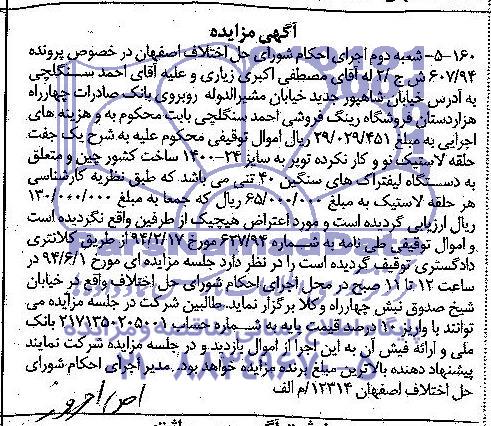 آگهی مزایده
۵-۱۶۰- شعبه دوم اجرای احکام شورای حل اختلاف اصفهان در خصوص پرونده
۶۰۷/۹۴ ش ح ۲/ له آقای مصطفی اکبری زیاری و علیه آقای احمد سنگلچی
به آدرس خیابان شاهپور جدید خیابان مشیرالدوله روبروی بانک صادرات چهارراه
هزاردستان فروشگاه رینگ فروشی احمد سنگلچی بابت محکوم به و هزینه های
اجرایی به مبلغ ۲۹/۰۲۹/۴۵۱ ریال اموال توقیفی محکوم علیه به شرح یک جفت
حلقه لاستیک نو و کار نکرده توپر به سایز ۲۴-۱۴۰۰ ساخت کشور چین و متعلق
به دستگاه لیفتراک های سنگین ۴۰ تنی می باشد که طبق نظریه کارشناسی
هر حلقه لاستیک به مبلغ ۶۵/۰۰۰/۰۰۰ ریال که جمعا به مبلغ ۱۳۰/۰۰۰/۰۰۰
ریال ارزیابی گردیده است و مورد اعتراض هیچیک از طرفین واقع نگردیده است
و اموال توقیفی طی نامه به شماره ۶۲۷/۹۴ مورخ ۹۴/۲/۱۷ از طریق کلانتری
دادگستری توقیف گردیده است را در نظر دارد جلسه مزایده ای مورخ ۹۴/۶/۱ در
ساعت ۱۲ تا ۱۱ صبح در محل اجرای احکام شورای حل اختلاف واقع در خیابان
شیخ صدوق نبش چهارراه وکلا برگزار نماید. طالبین شرکت در جلسه مزایده می
توانند با واریز ۱۰ درصد قیمت پایه به شماره حساب ۲۱۷۱۳۵۰۲۰۵۰۰۱ بانک
ملی و ارائه فیش آن به این اجرا از اموال بازدید و در جلسه مزایده شرکت نمایند
پیشنهاد دهنده بالاترین مبلغ برنده مزایده خواهد بود. مدیر اجرای احکام شورای
حل اختلاف اصفهان ۱۲۳۱۴/م الف